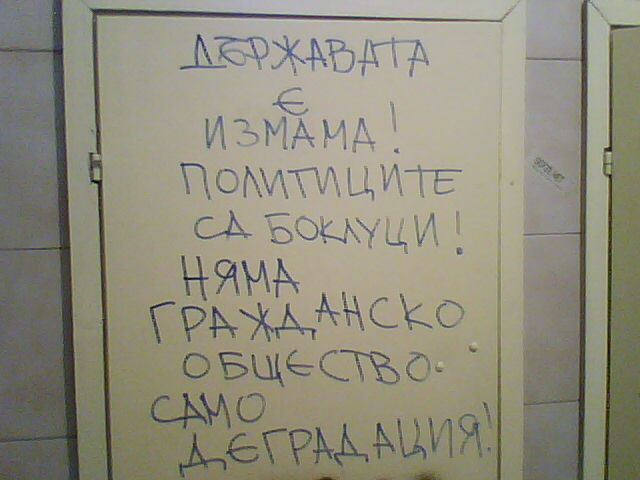 ДЪРЖАВАТА
Е
ИЗМАМА!
ПОЛИТИЦИТЕ
СА БОКЛУЦИ!
НЯМА
ГРАЖДАНСКО
ОБЩЕСТВО-
САМО
ДЕГРАДАЦИЯ!